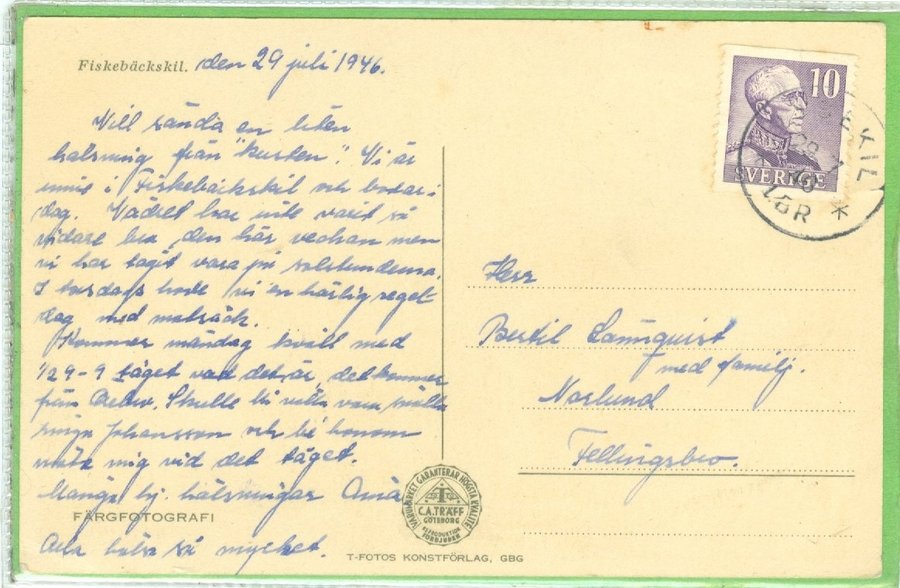 Fiskebäckskil. den 29 juli 1946.
10
SVERIGE
Vill sända en liten
hälsning från "kusten". Vi är
inne i Fiskebäckskil och badar i
dag. Vädret har inte varit så
vidare bra den här veckan men
vi har tagit vara på solstunderna.
I torsdags hade vi en härlig segel-
dag med matsäck.
Kommer måndag kväll med
1/2 9-9 tåget vad det är, det kommer
från Örebro. Skulle bi vilja vara snälla
ringa Johansson och be honom
möta mig vid det tåget.
Många hj. hälsningar
Alla hälsa så mycket.
Herr
Bertil Lannquist
med familj.
Norlund
Fellingsbro.
VARUMÄRKET GARANTERAR HÖGSTA KVALITE
C.A. TRÄFF
GÖTEBORG
REPRODUKTION
FÖRBJUDEN
FÄRGFOTOGRAFI
T-FOTOS KONSTFÖRLAG, GBG